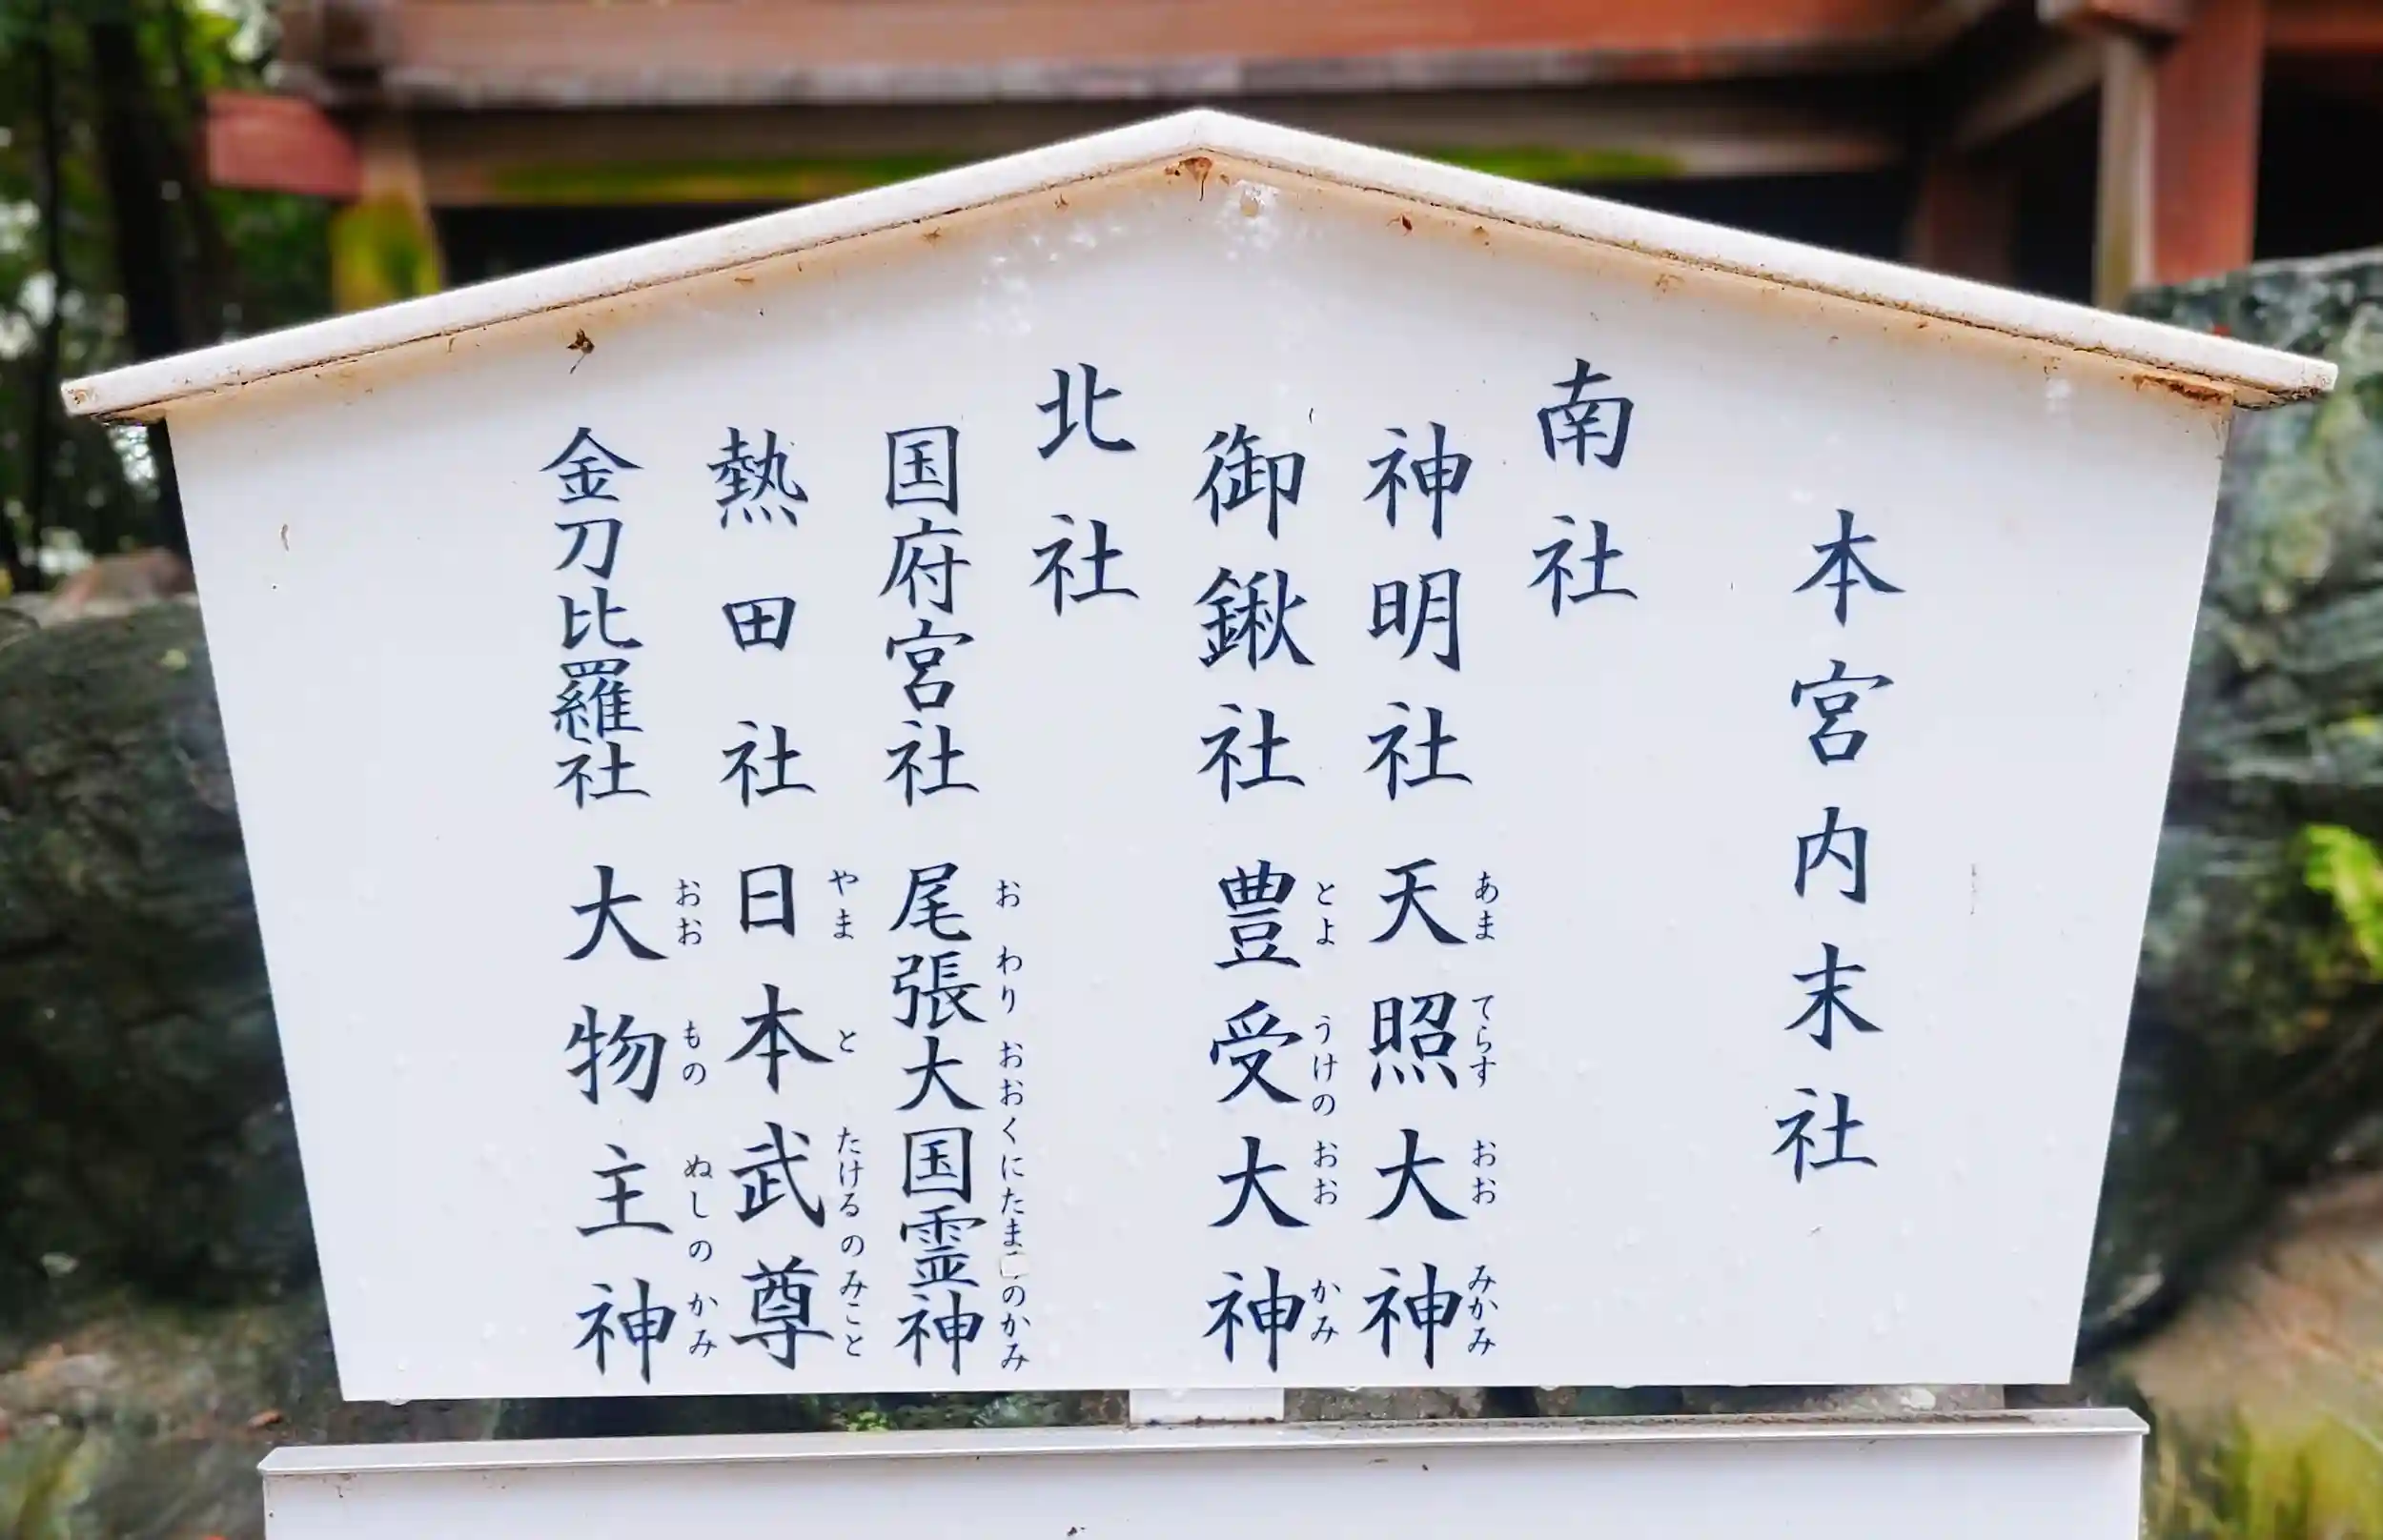 本宮内末社
南社
神明社 天照大神
あまてらすおおみかみ
御鍬社 豊受大神
とようけのおおかみ
北社
国府宮社 尾張大国霊神
おわりおおくにたまのかみ
熱田社 日本武尊
やまとたけるのみこと
金刀比羅社 大物主神
おおものぬしのかみ